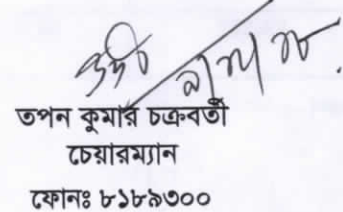 তপন কুমার চক্রবর্তী
চেয়ারম্যান
ফোনঃ ৮১৮৯৩০০